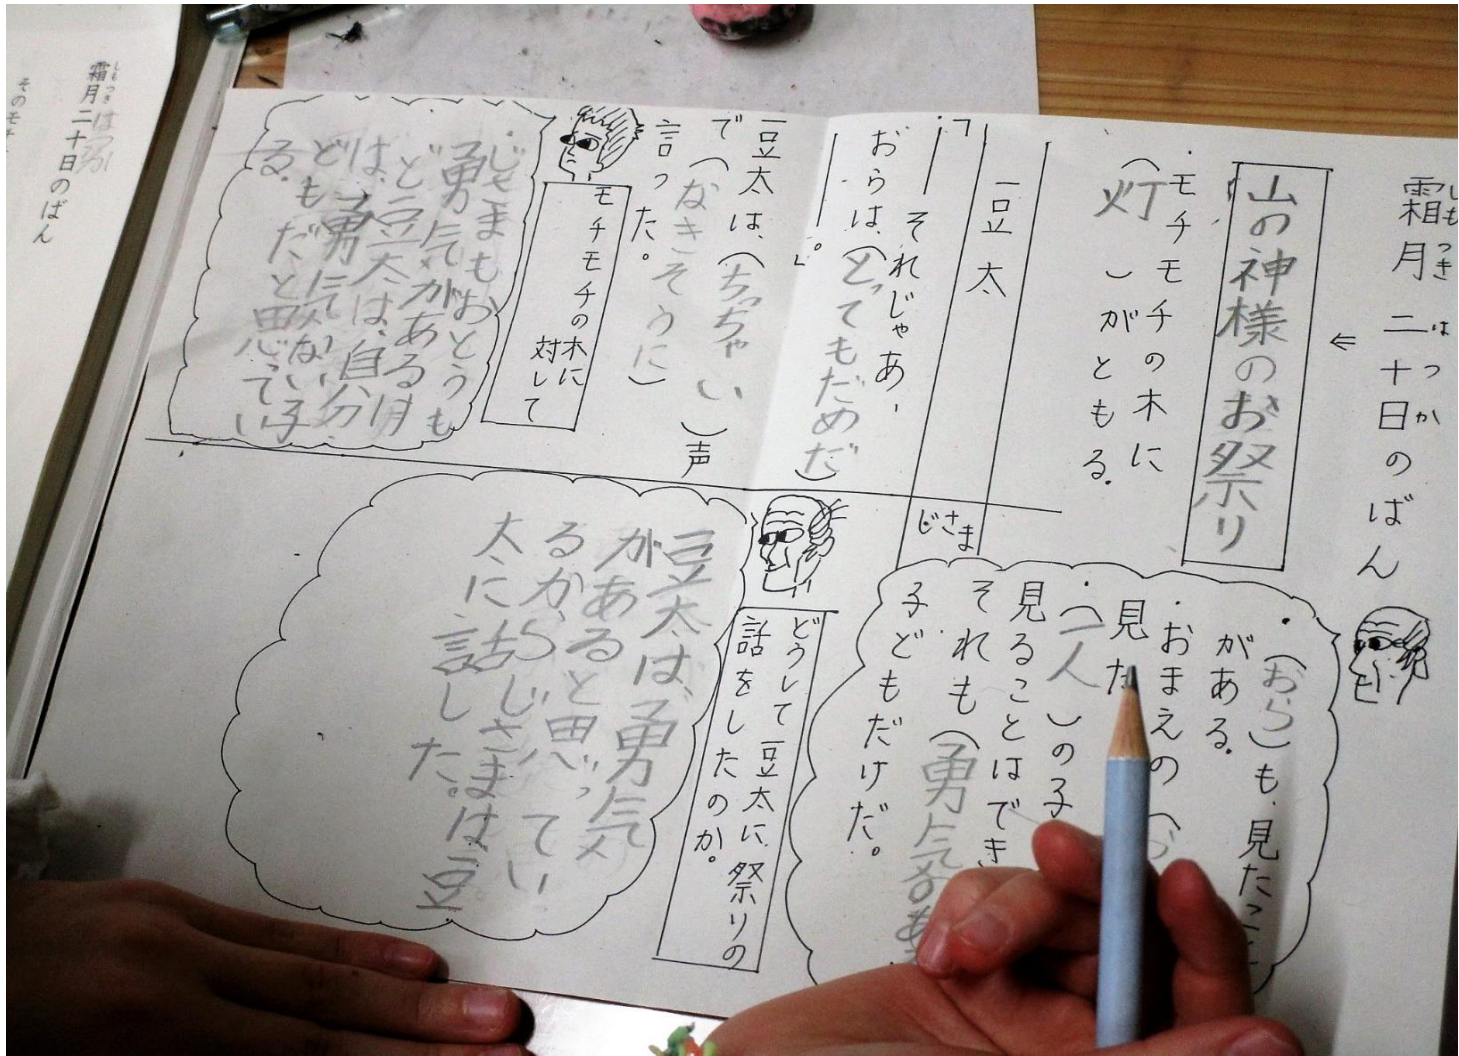 霜月二十日のばん
しも つき はつ か
⇐
山の神様のお祭り
・モチモチの木に
(灯)がともる。
豆太
「――それじゃあ、
おらは、(とってもだめだ)
――。」
豆太は、(ちっちゃい)声
で(なきそうに)
言った。
モチモチの木に
対して
・じさまもおとうも
勇気がある
ど豆太は、自分
は、勇
ども だと思ってい
る。
じさま
・(おら)も、見たこ
がある。
・おまえの(お
見た
・(一人)の子
見ることはでき
それも(勇気のあ
子どもだけだ。
どうして豆太に、祭りの
話をしたのか。
豆太は、勇気
があると思ってい
るから、じさまは豆
太に話した。
霜月二十日のばん
しも つき はつか
そのモチ